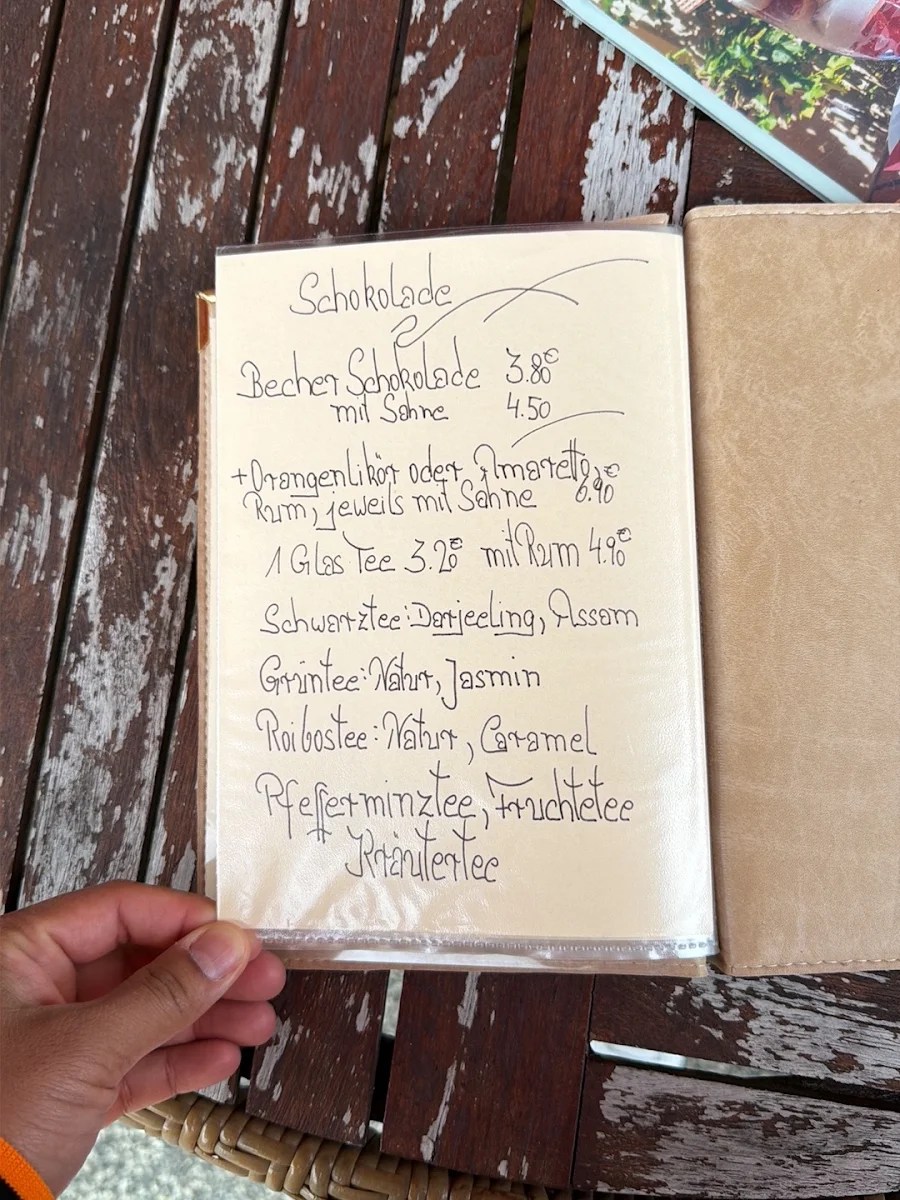 Schokolade
Becher Schokolade 3.80€
mit Sahne 4.50
+Orangenlikör oder Amaretto,
Rum, jeweils mit Sahne 6.90€
1 Glas Tee 3.20€ mit Rum 4.90€
Schwarztee: Darjeeling, Assam
Grüntee: Natur, Jasmin
Roibostee: Natur, Caramel
Pfefferminztee, Früchtetee
Kräutertee